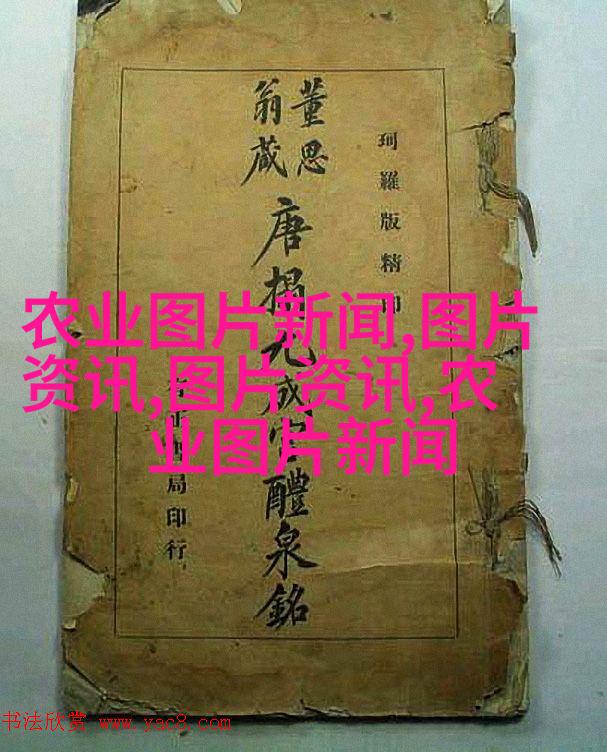 珂羅版精印
董思
翁藏
唐搨九成宮醴泉銘
局印行
农业图片新闻,图片
资讯,图片资讯,农
业图片新闻
书法欣赏 www.yac8.com